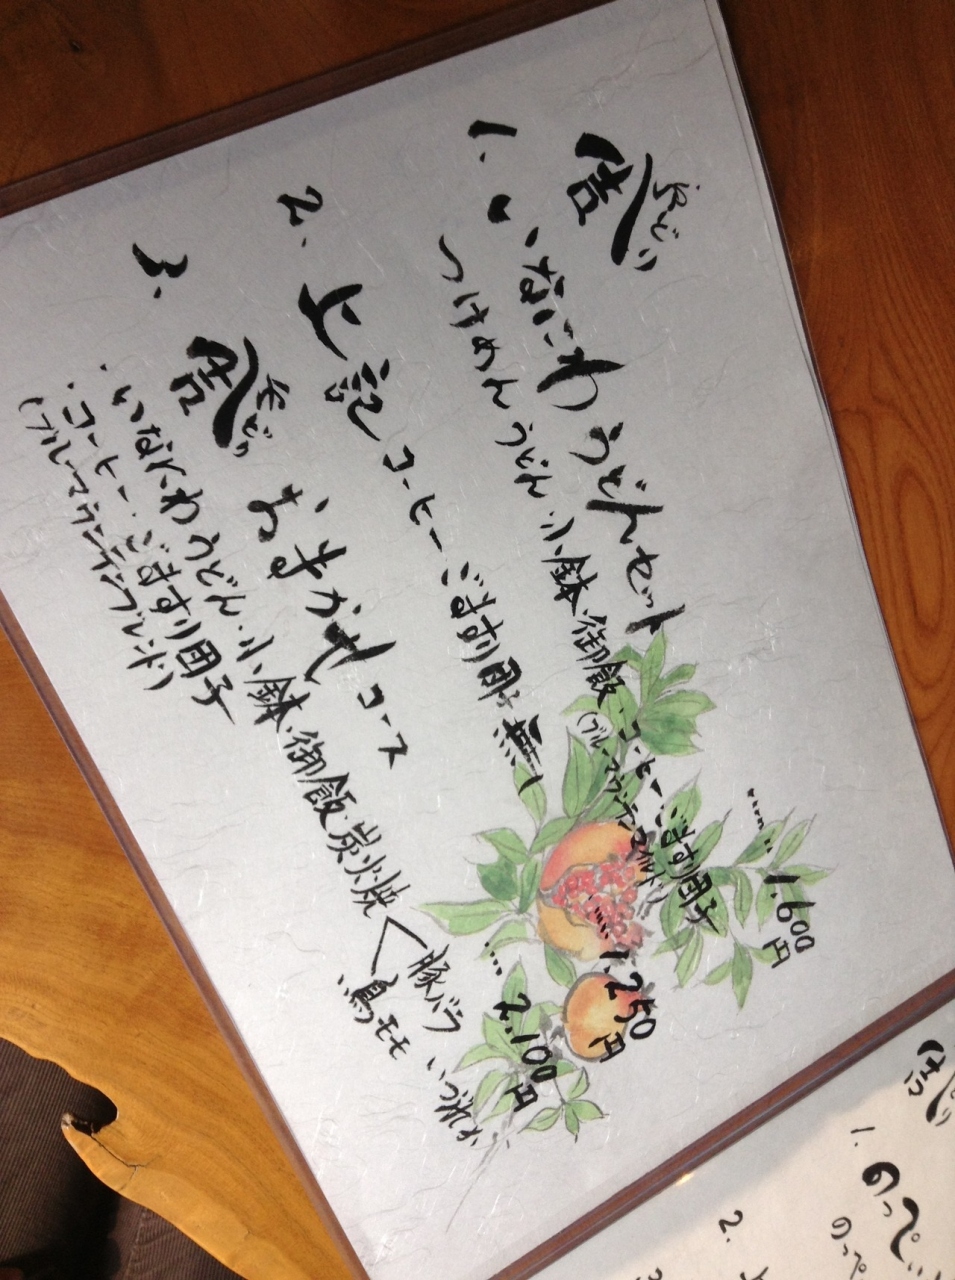 1. いなにわうどんセット ……1.600円
つけめんうどん・小鉢・御飯・コーヒー・ごますり団子
2. 上記コーヒー・ごますり団子無し ……1.250円
3. おまかせコース ……2.100円
・いなにわうどん・小鉢・御飯・炭火焼く豚バラ 鳥モモ いづれか
・コーヒー・ごますり団子
(ブルーマウンテンブレンド)
1. のっぺい
のっぺ
2.